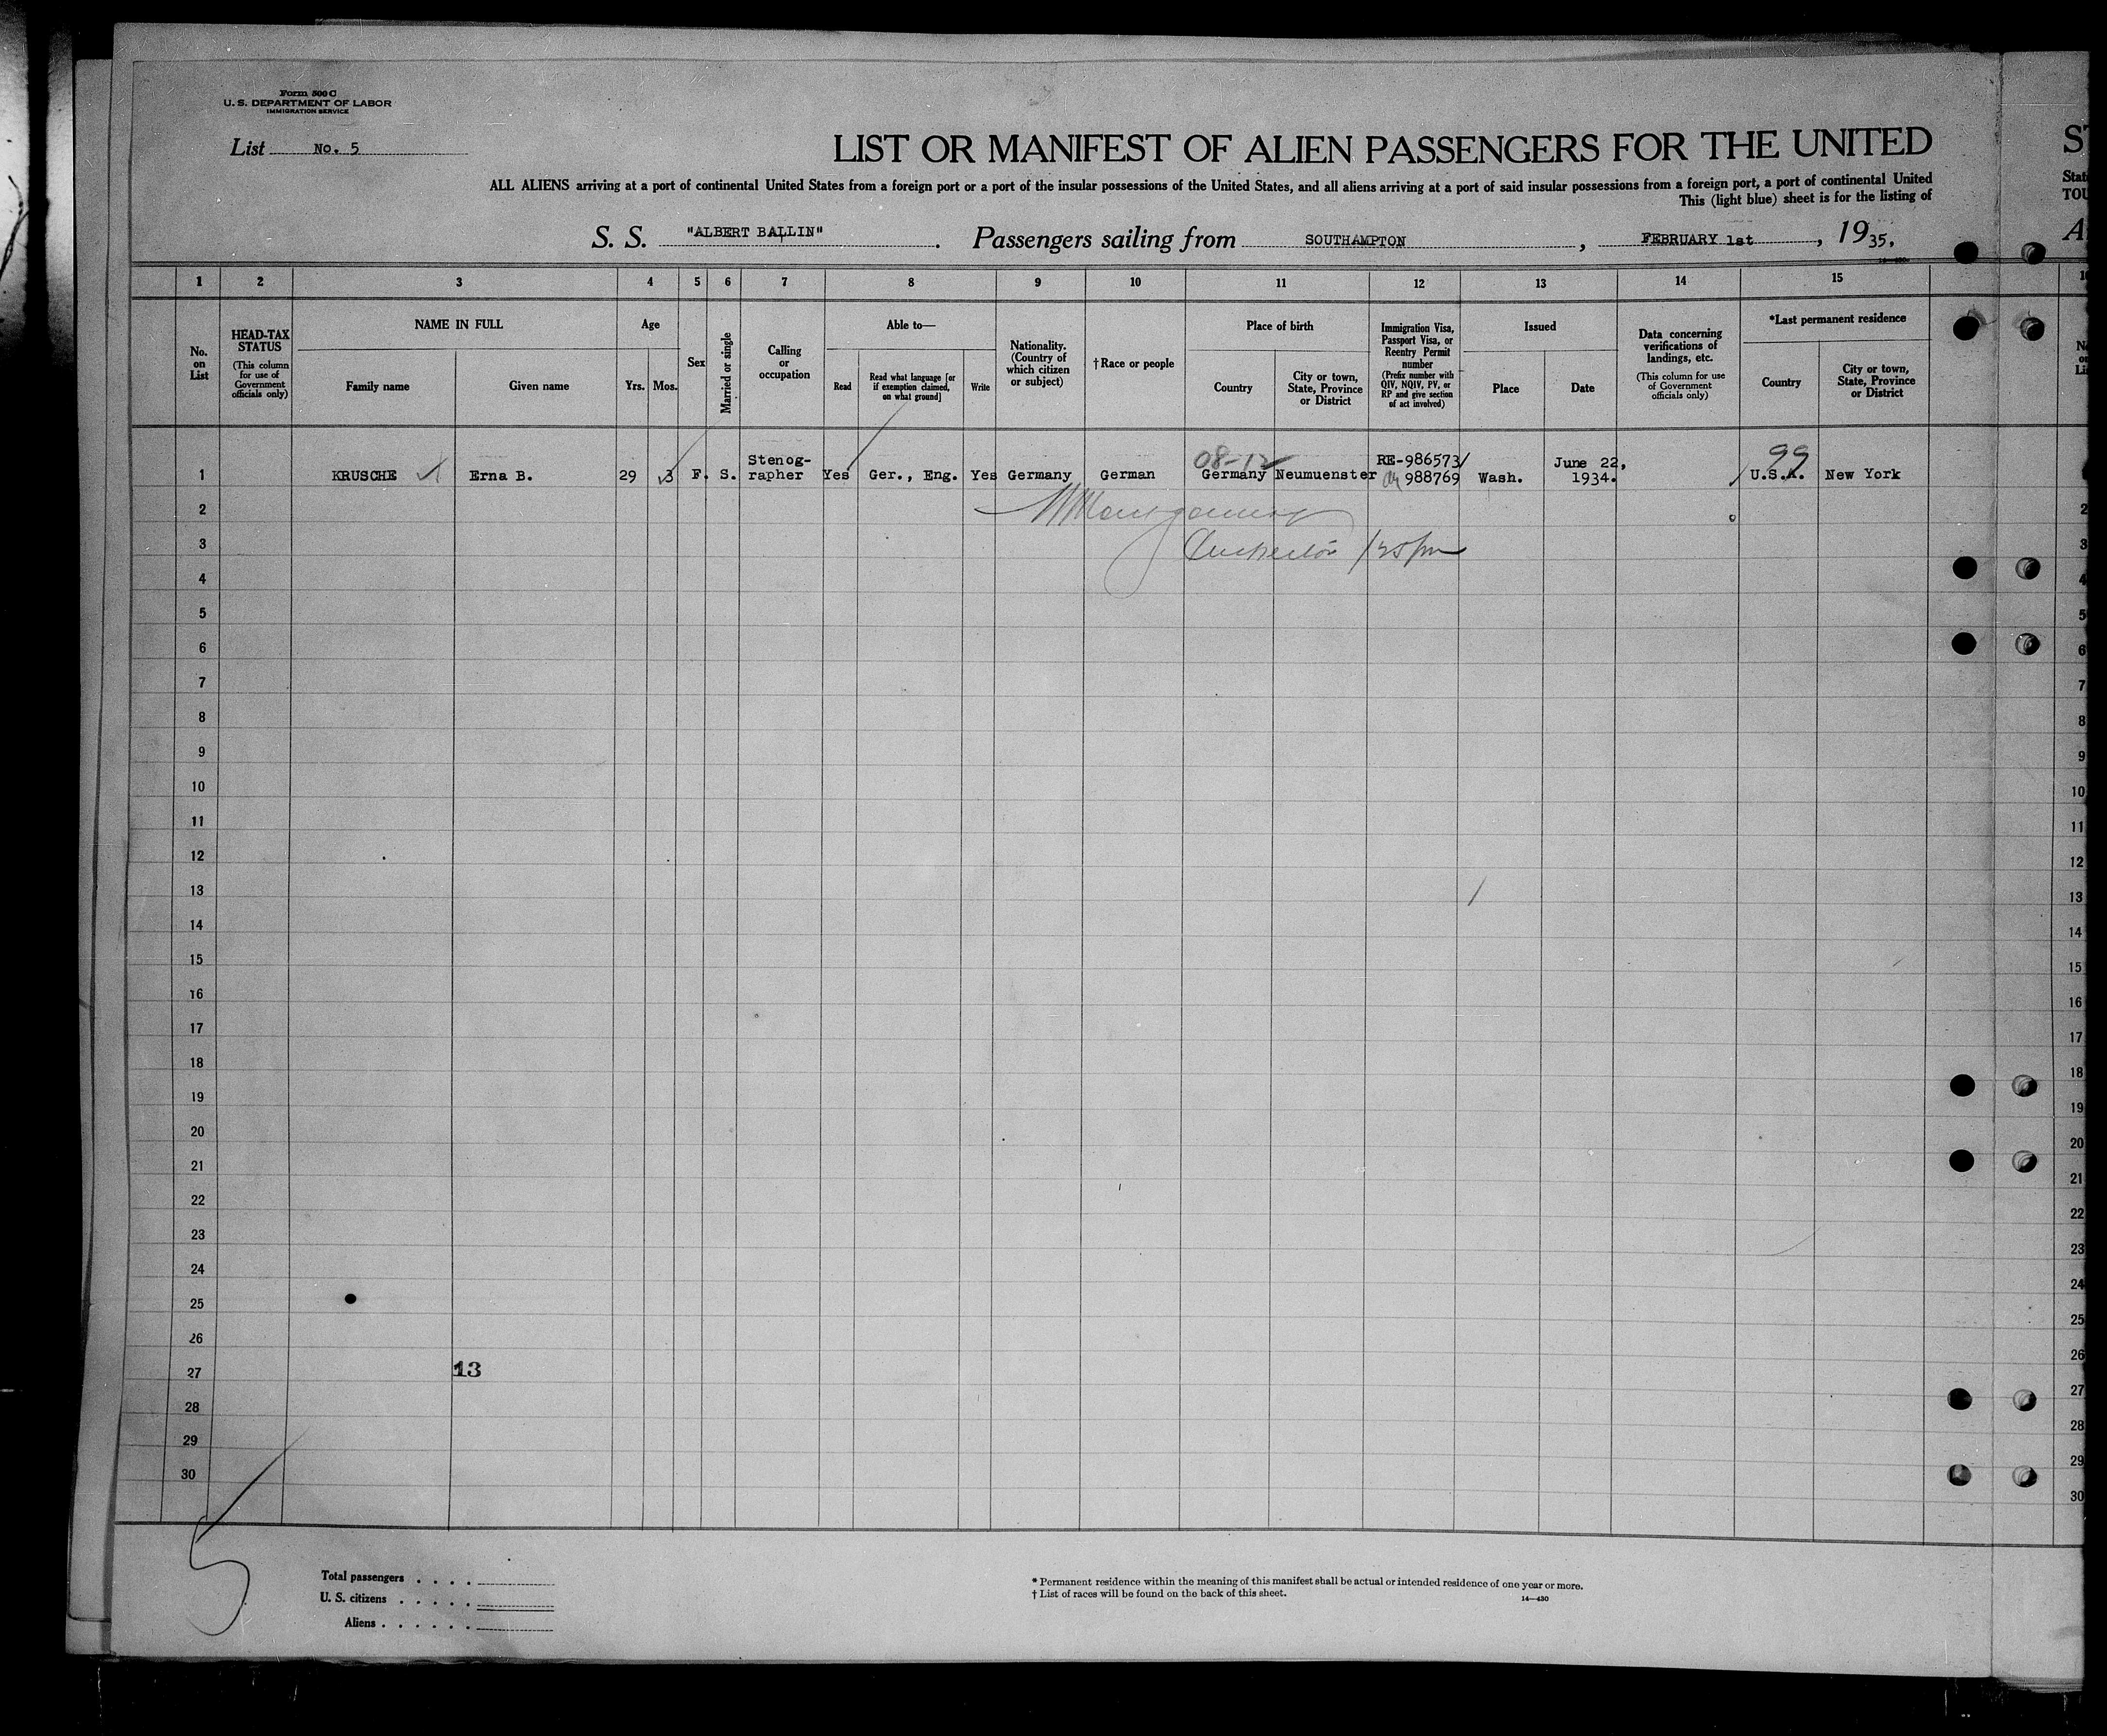 Form 500 C
U. S. DEPARTMENT OF LABOR
IMMIGRATION SERVICE
List No. 5
LIST OR MANIFEST OF ALIEN PASSENGERS FOR THE UNITED
ALL ALIENS arriving at a port of continental United States from a foreign port or a port of the insular possessions of the United States, and all aliens arriving at a port of said insular possessions from a foreign port, a port of continental United
This (light blue) sheet is for the listing of
S. S. "ALBERT BALLIN" . Passengers sailing from SOUTHAMPTON , FEBRUARY 1st , 19 35.
1 2 3 4 5 6 7 8 9 10 11 12 13 14 15
No. on List
HEAD-TAX STATUS
(This column for use of Government officials only)
NAME IN FULL
Family name
Given name
Age
Yrs.
Mos.
Sex
Married or single
Calling or occupation
Able to—
Read
Read what language [or if exemption claimed, on what ground]
Write
Nationality. (Country of which citizen or subject)
† Race or people
Place of birth
Country
City or town, State, Province or District
Immigration Visa, Passport Visa, or Reentry Permit number
(Prefix number with QIV, NQIV, PV, or RP and give section of act involved)
Issued
Place
Date
Data concerning verifications of landings, etc.
(This column for use of Government officials only)
*Last permanent residence
Country
City or town, State, Province or District
08-12 99
1 KRUSCHE Erna B. 29 3 F. S. Stenog-rapher Yes Ger., Eng. Yes Germany German Germany Neumuenster RE-986573/ 988769 Wash. June 22, 1934. U.S.A. New York
2
3
4
5
6
7
8
9
10
11
12
13
14
15
16
17
18
19
20
21
22
23
24
25
26
27 13
28
29
30
5
Total passengers . . . .
U. S. citizens . . . . .
Aliens . . . . . .
* Permanent residence within the meaning of this manifest shall be actual or intended residence of one year or more.
† List of races will be found on the back of this sheet.
14—430